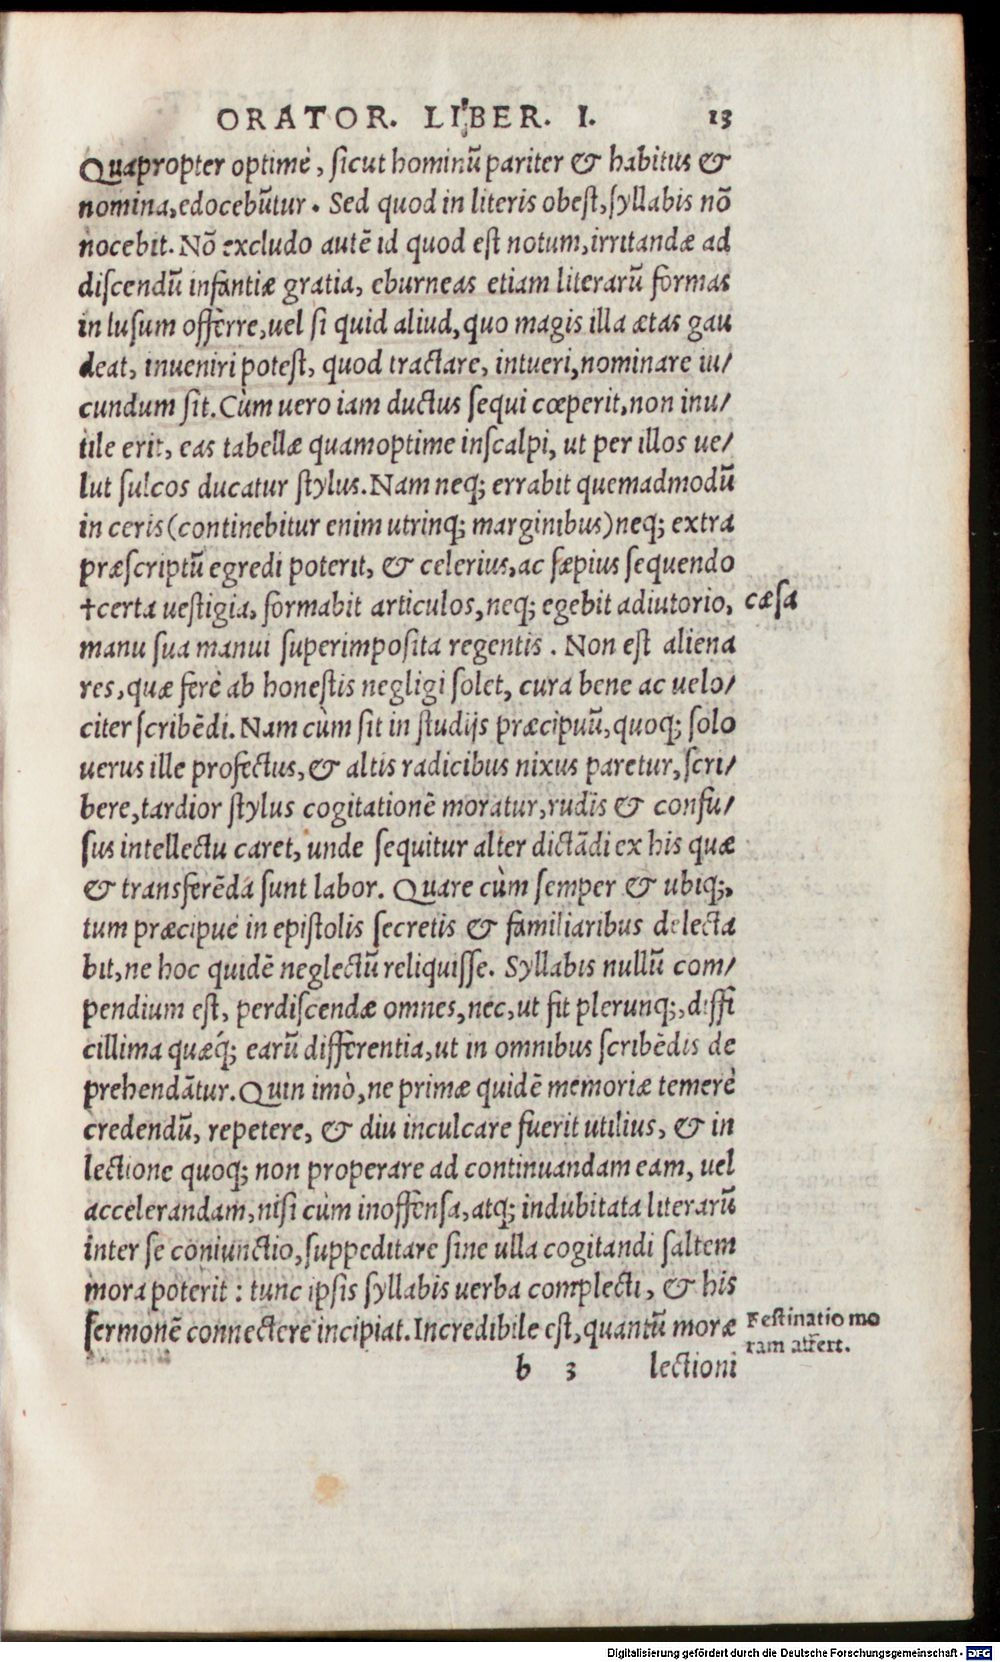 ORATOR. LIBER. I. 13
Quapropter optimè, sicut hominū pariter & habitus &
nomina, edocebūtur. Sed quod in literis obest, syllabis nō
nocebit. Nō excludo autē id quod est notum, irritandæ ad
discendū infantiæ gratia, eburneas etiam literarū formas
in lusum offerre, uel si quid aliud, quo magis illa ætas gau
deat, inueniri potest, quod tractare, intueri, nominare iu/
cundum sit. Cùm uero iam ductus sequi cœperit, non inu/
tile erit, eas tabellæ quamoptime inscalpi, ut per illos ue/
lut sulcos ducatur stylus. Nam neq; errabit quemadmodū
in ceris (continebitur enim utrinq; marginibus) neq; extra
præscriptū egredi poterit, & celerius, ac sæpius sequendo
†certa uestigia, formabit articulos, neq; egebit adiutorio, cæsa
manu sua manui superimposita regentis. Non est aliena
res, quæ ferè ab honestis negligi solet, cura bene ac uelo/
citer scribēdi. Nam cùm sit in studijs præcipuū, quoq; solo
uerus ille profectus, & altis radicibus nixus paretur, scri/
bere, tardior stylus cogitationē moratur, rudis & confu/
sus intellectu caret, unde sequitur alter dictādi ex his quæ
& transferēda sunt labor. Quare cùm semper & ubiq;,
tum præcipuè in epistolis secretis & familiaribus delecta
bit, ne hoc quidē neglectū reliquisse. Syllabis nullū com/
pendium est, perdiscendæ omnes, nec, ut fit plerunq;, diffi
cillima quæq́; earū differentia, ut in omnibus scribēdis de
prehendātur. Quin imò, ne primæ quidē memoriæ temerè
credendū, repetere, & diu inculcare fuerit utilius, & in
lectione quoq; non properare ad continuandam eam, uel
accelerandam, nisi cùm inoffensa, atq; indubitata literarū
inter se coniunctio, suppeditare sine ulla cogitandi saltem
mora poterit: tunc ipsis syllabis uerba complecti, & his
sermonē connectere incipiat. Incredibile est, quantū moræ
Festinatio mo
ram affert.
b 3 lectioni
Digitalisierung gefördert durch die Deutsche Forschungsgemeinschaft - DFG